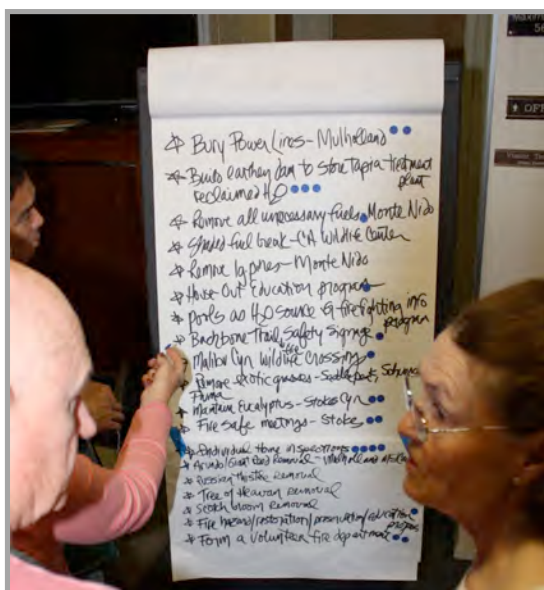 Bury Power Lines - Mulholland
Build earthen dam to store Tapia treatment
plant
reclaimed H2O
Remove all unnecessary fuels Monte Nido
Shaded fuel break - CA Wildlife Center
Remove lg pines - Monte Nido
House Out Education program
Pools as H2O source & firefighting info
program
Backbone Trail Safety Signage
fire
Malibu Cyn Wildlife Crossing
Remove exotic grasses -
Maintain Eucalyptus - Stokes Cyn
Fire safe meetings - Stokes
Individual Home inspections
Removal - Mulholland
Russian thistle removal
Tree of Heaven removal
Scotch broom removal
Fire hazard/restoration/ education
program
Form a volunteer fire department
OFF